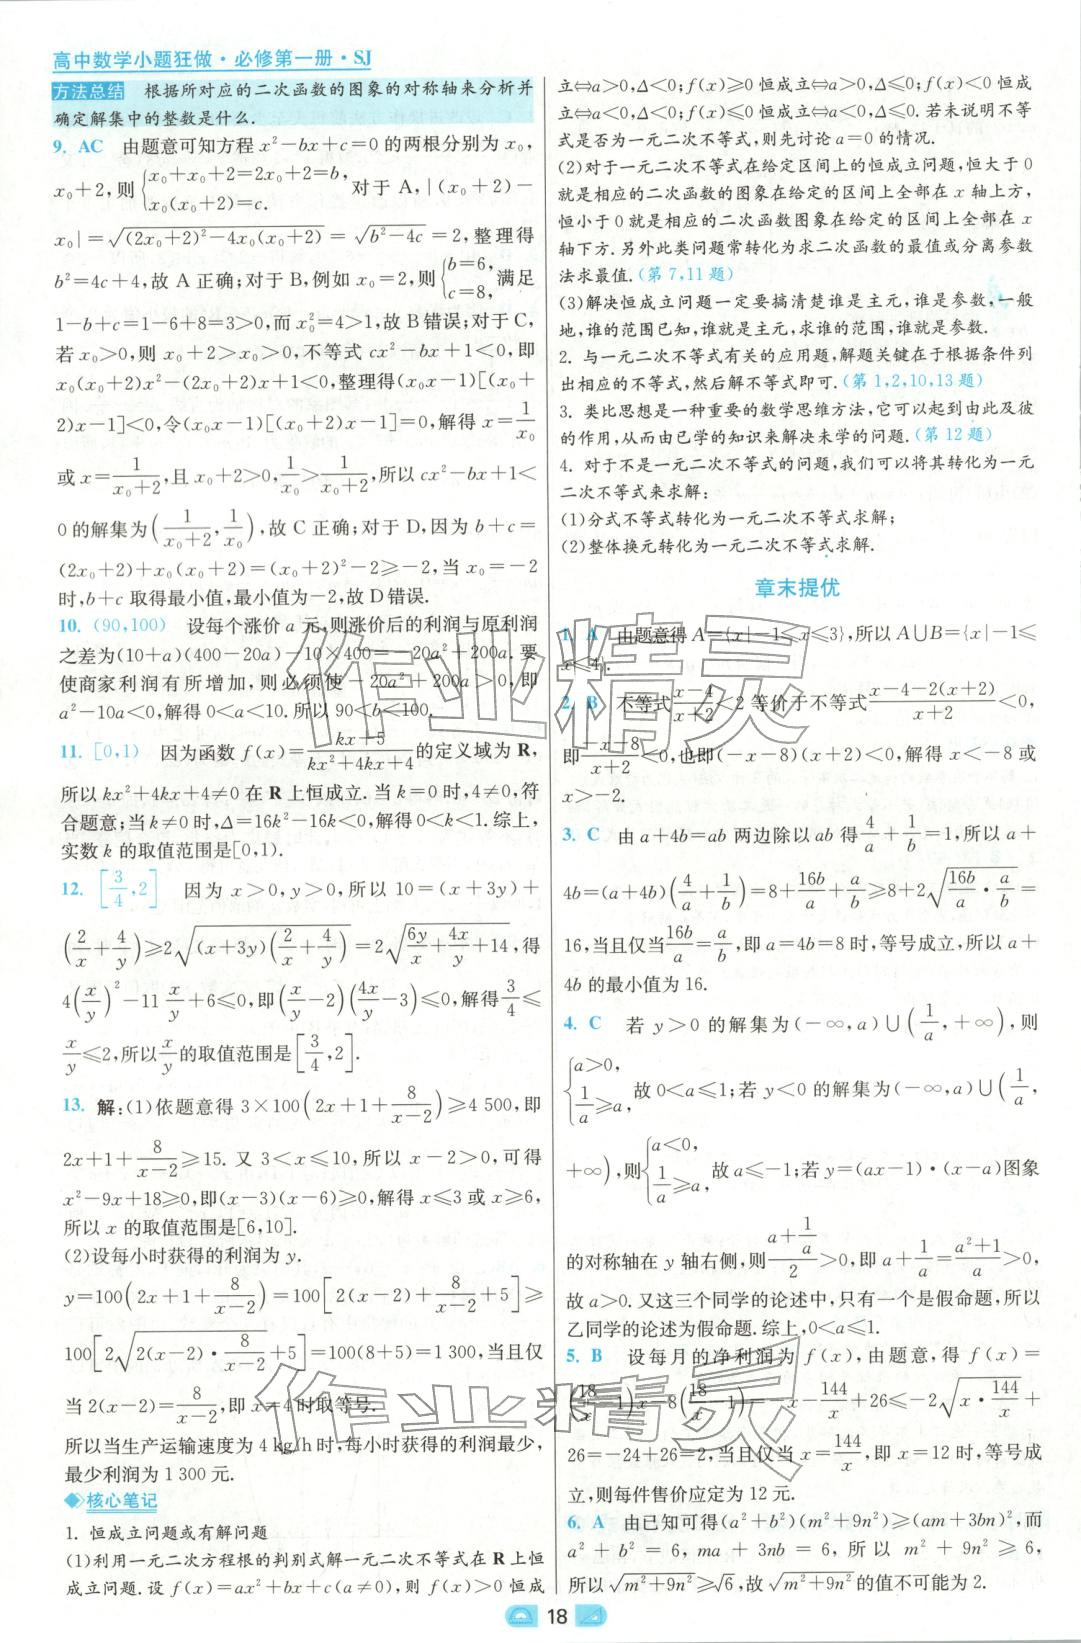 高中数学小题狂做·必修第一册·SJ
方法总结 根据所对应的二次函数的图象的对称轴来分析并
确定解集中的整数是什么.
9. AC 由题意可知方程 x²-bx+c=0 的两根分别为 x₀,
x₀+2,则{x₀+x₀+2=2x₀+2=b, x₀(x₀+2)=c. 对于 A,|(x₀+2)-
x₀|=√((2x₀+2)²-4x₀(x₀+2))=√(b²-4c)=2,整理得
b²=4c+4,故 A 正确;对于 B,例如 x₀=2,则{b=6, c=8, 满足
1-b+c=1-6+8=3>0,而 x₀²=4>1,故 B 错误;对于 C,
若 x₀>0,则 x₀+2>x₀>0,不等式 cx²-bx+1<0,即
x₀(x₀+2)x²-(2x₀+2)x+1<0,整理得(x₀x-1)[(x₀+
2)x-1]<0,令(x₀x-1)[(x₀+2)x-1]=0,解得 x=1/x₀
或 x=1/(x₀+2),且 x₀+2>0,1/x₀>1/(x₀+2),所以 cx²-bx+1<
0 的解集为(1/(x₀+2),1/x₀),故 C 正确;对于 D,因为 b+c=
(2x₀+2)+x₀(x₀+2)=(x₀+2)²-2≥-2,当 x₀=-2
时,b+c 取得最小值,最小值为-2,故 D 错误.
10. (90,100) 设每个涨价 a 元,则涨价后的利润与原利润
之差为(10+a)(400-20a)-10×400=-20a²+200a.要
使商家利润有所增加,则必须使-20a²+200a>0,即
a²-10a<0,解得 0<a<10.所以 90<b<100.
11. [0,1) 因为函数 f(x)=(kx+5)/(kx²+4kx+4)的定义域为 R,
所以 kx²+4kx+4≠0 在 R 上恒成立.当 k=0 时,4≠0,符
合题意;当 k≠0 时,Δ=16k²-16k<0,解得 0<k<1.综上,
实数 k 的取值范围是[0,1).
12. [3/4,2] 因为 x>0,y>0,所以 10=(x+3y)+
(2/x+4/y)≥2√((x+3y)(2/x+4/y))=2√(6y/x+4x/y+14),得
4(x/y)²-11 x/y+6≤0,即(x/y-2)(4x/y-3)≤0,解得 3/4≤
x/y≤2,所以 x/y 的取值范围是[3/4,2].
13. 解:(1)依题意得 3×100(2x+1+8/(x-2))≥4 500,即
2x+1+8/(x-2)≥15.又 3<x≤10,所以 x-2>0,可得
x²-9x+18≥0,即(x-3)(x-6)≥0,解得 x≤3 或 x≥6,
所以 x 的取值范围是[6,10].
(2)设每小时获得的利润为 y.
y=100(2x+1+8/(x-2))=100[2(x-2)+8/(x-2)+5]≥
100[2√(2(x-2)·8/(x-2))+5]=100(8+5)=1 300,当且仅
当 2(x-2)=8/(x-2),即 x=4 时取等号.
所以当生产运输速度为 4 kg/h 时,每小时获得的利润最少,
最少利润为 1 300 元.
核心笔记
1. 恒成立问题或有解问题
(1)利用一元二次方程根的判别式解一元二次不等式在 R 上恒
成立问题.设 f(x)=ax²+bx+c(a≠0),则 f(x)>0 恒成
立⇔a>0,Δ<0;f(x)≥0 恒成立⇔a>0,Δ≤0;f(x)<0 恒成
立⇔a<0,Δ<0;f(x)≤0 恒成立⇔a<0,Δ≤0.若未说明不等
式是否为一元二次不等式,则先讨论 a=0 的情况.
(2)对于一元二次不等式在给定区间上的恒成立问题,恒大于 0
就是相应的二次函数的图象在给定的区间上全部在 x 轴上方,
恒小于 0 就是相应的二次函数图象在给定的区间上全部在 x
轴下方.另外此类问题常转化为求二次函数的最值或分离参数
法求最值.(第 7,11 题)
(3)解决恒成立问题一定要搞清楚谁是主元,谁是参数,一般
地,谁的范围已知,谁就是主元,求谁的范围,谁就是参数.
2. 与一元二次不等式有关的应用题,解题关键在于根据条件列
出相应的不等式,然后解不等式即可.(第 1,2,10,13 题)
3. 类比思想是一种重要的数学思维方法,它可以起到由此及彼
的作用,从而由已学的知识来解决未学的问题.(第 12 题)
4. 对于不是一元二次不等式的问题,我们可以将其转化为一元
二次不等式来求解:
(1)分式不等式转化为一元二次不等式求解;
(2)整体换元转化为一元二次不等式求解.
章末提优
1. A 由题意得 A={x|-1≤x≤3},所以 A∪B={x|-1≤
x≤4}.
2. B 不等式(x-4)/(x+2)<2 等价于不等式(x-4-2(x+2))/(x+2)<0,
即(-x-8)/(x+2)<0,也即(-x-8)(x+2)<0,解得 x<-8 或
x>-2.
3. C 由 a+4b=ab 两边除以 ab 得 4/a+1/b=1,所以 a+
4b=(a+4b)(4/a+1/b)=8+16b/a+a/b≥8+2√(16b/a·a/b)=
16,当且仅当 16b/a=a/b,即 a=4b=8 时,等号成立,所以 a+
4b 的最小值为 16.
4. C 若 y>0 的解集为(-∞,a)∪(1/a,+∞),则
{a>0, 1/a≥a, 故 0<a≤1;若 y<0 的解集为(-∞,a)∪(1/a,
+∞),则{a<0, 1/a≥a, 故 a≤-1;若 y=(ax-1)·(x-a)图象
的对称轴在 y 轴右侧,则(a+1/a)/2>0,即 a+1/a=(a²+1)/a>0,
故 a>0.又这三个同学的论述中,只有一个是假命题,所以
乙同学的论述为假命题.综上,0<a≤1.
5. B 设每月的净利润为 f(x),由题意,得 f(x)=
(18/x-1)x-8(18/x-1)=-x-144/x+26≤-2√(x·144/x)+
26=-24+26=2,当且仅当 x=144/x,即 x=12 时,等号成
立,则每件售价应定为 12 元.
6. A 由已知可得(a²+b²)(m²+9n²)≥(am+3bn)²,而
a²+b²=6, ma+3nb=6, 所以 m²+9n²≥6,
所以√(m²+9n²)≥√6,故√(m²+9n²)的值不可能为 2.
18
作业精灵
作业精灵